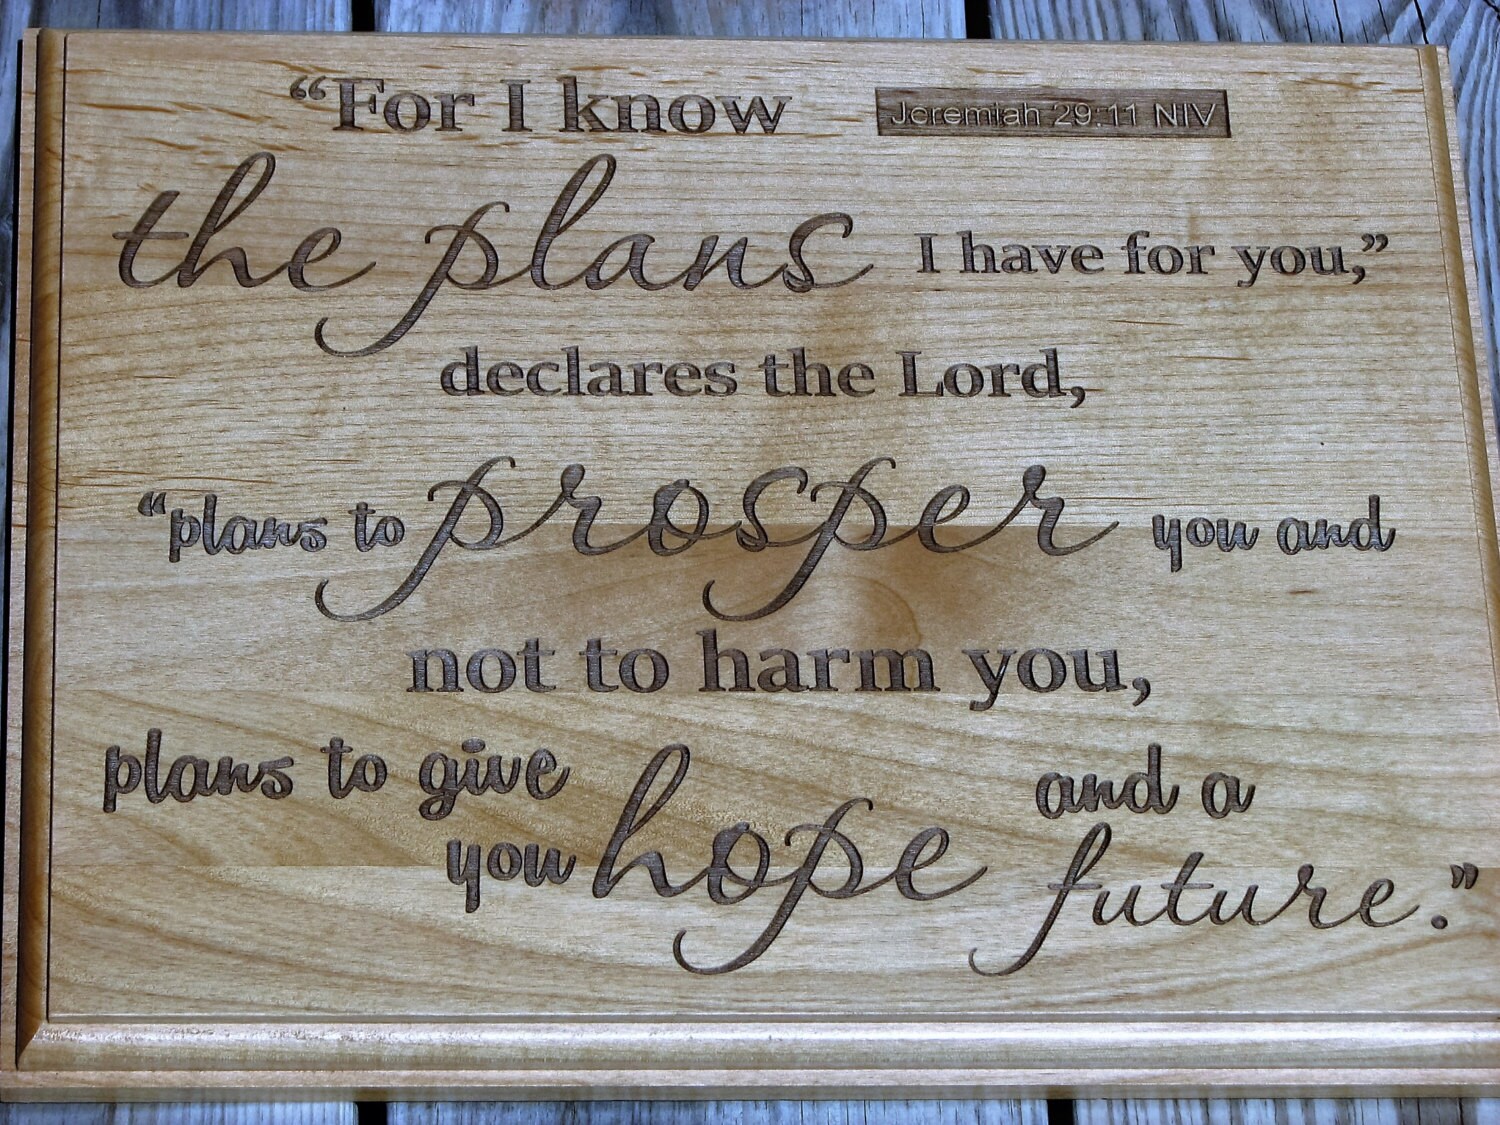 “For I know
Jeremiah 29:11 NIV
the plans I have for you,”
declares the Lord,
“plans to prosper you and
not to harm you,
plans to give
you hope and a
future.”